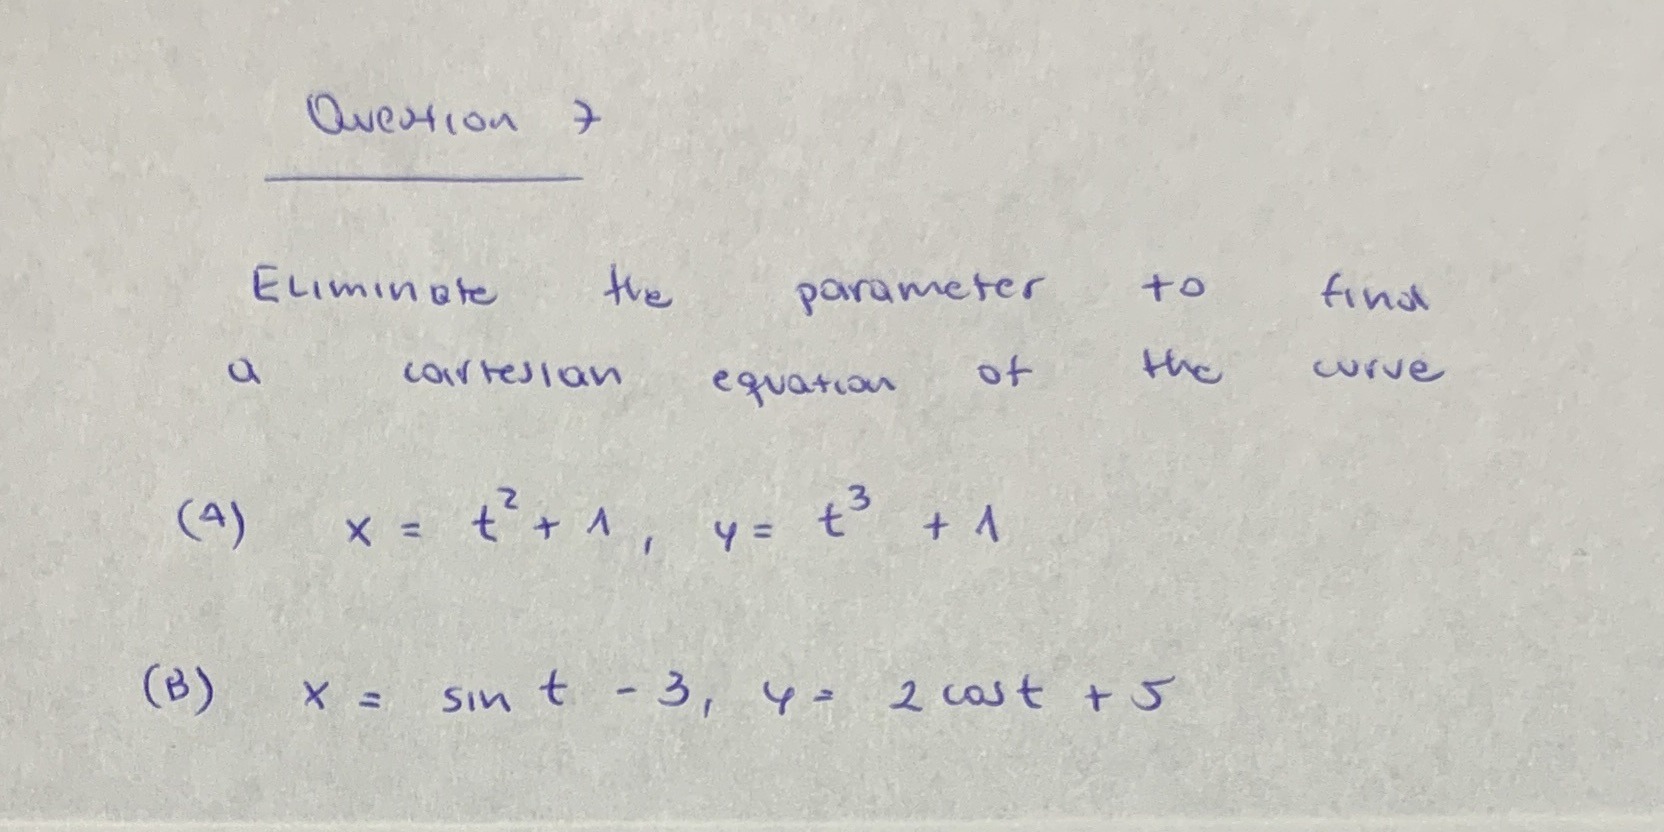 Question 7
Eliminate the parameter to find
a cartesian equation of the curve
(A) x = t² + 1, y = t³ + 1
(B) x = sin t - 3, y = 2 cost + 5